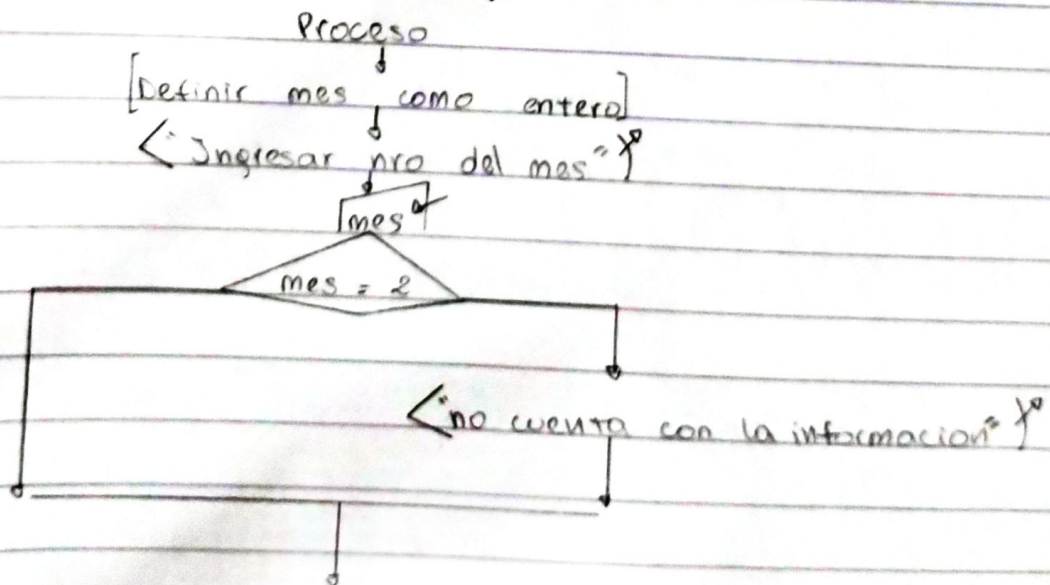 Proceso
[Definir mes como entero]
"Ingresar nro del mes"
mes
mes = 2
"no cuenta con la informacion"